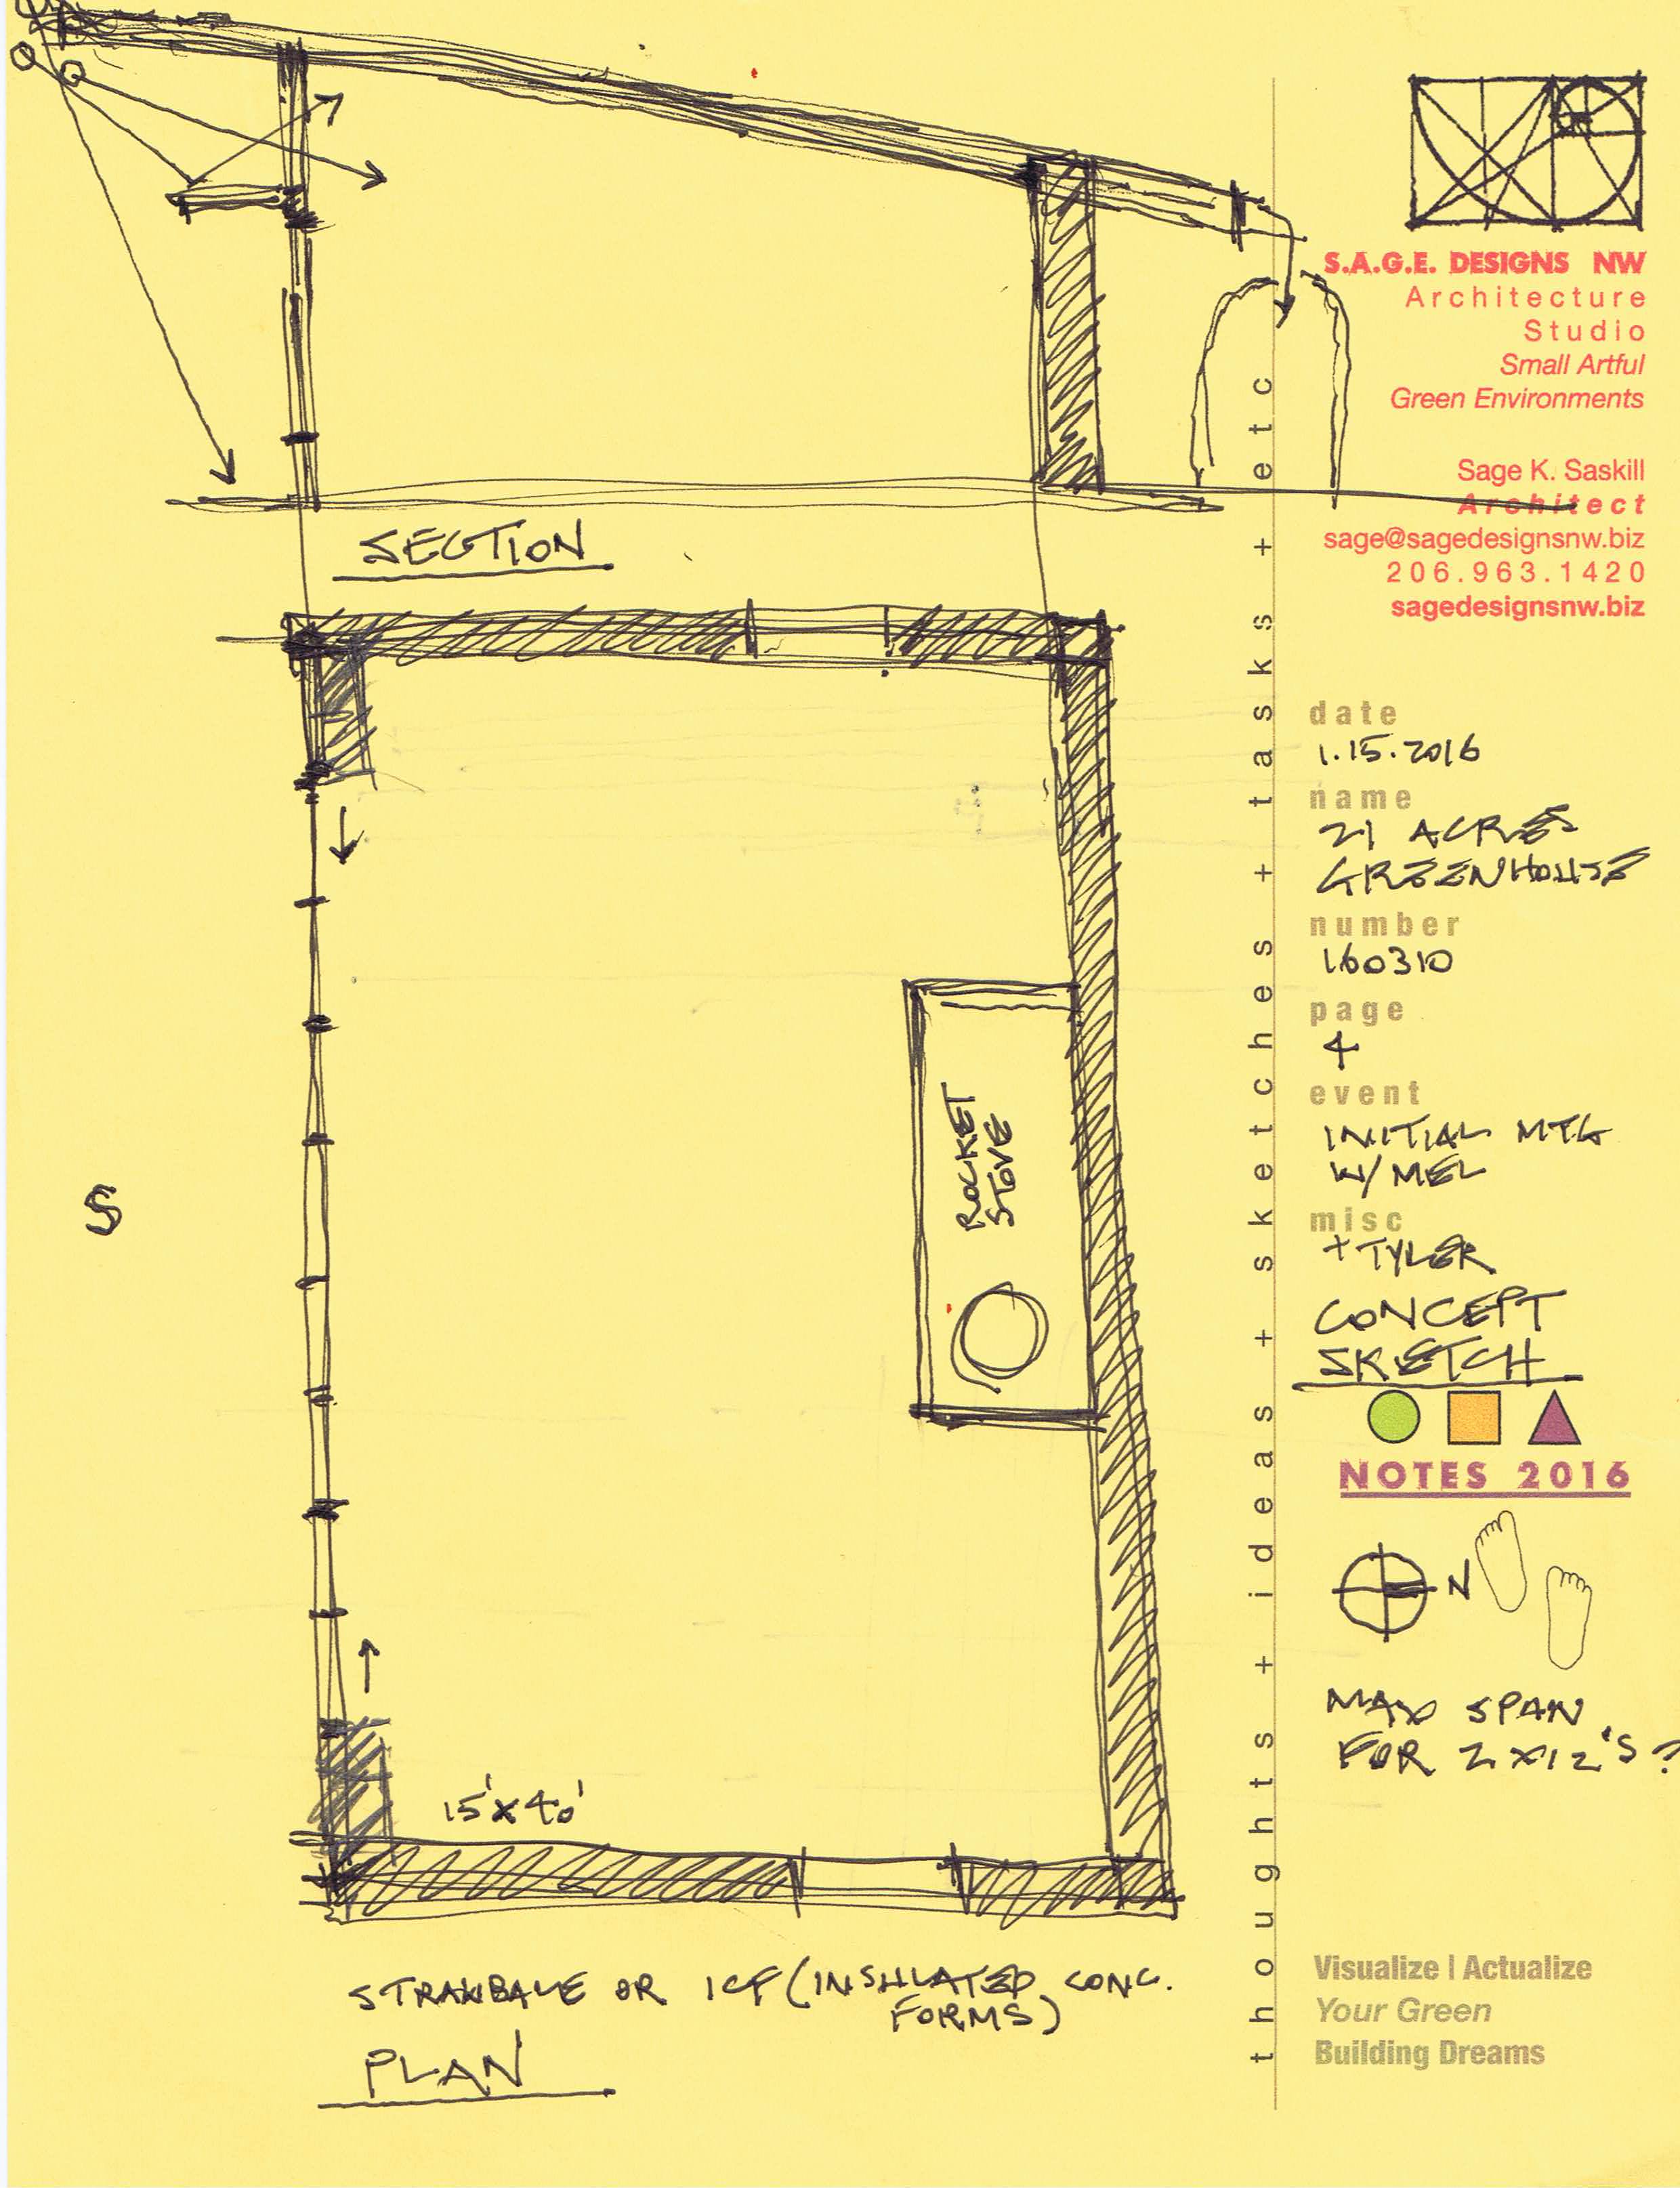 SECTION
S
ROCKET
STOVE
15'x40'
STRAWBALE OR ICF (INSULATED CONC.
FORMS)
PLAN
thoughts + ideas + sketches + tasks + etc
S.A.G.E. DESIGNS NW
Architecture
Studio
Small Artful
Green Environments
Sage K. Saskill
Architect
sage@sagedesignsnw.biz
206.963.1420
sagedesignsnw.biz
date
1.15.2016
name
21 ACRES
GREENHOUSE
number
160310
page
4
event
INITIAL MTG
W/ MEL
misc
+ TYLER
CONCEPT
SKETCH
NOTES 2016
N
MAX SPAN
FOR 2x12's?
Visualize | Actualize
Your Green
Building Dreams